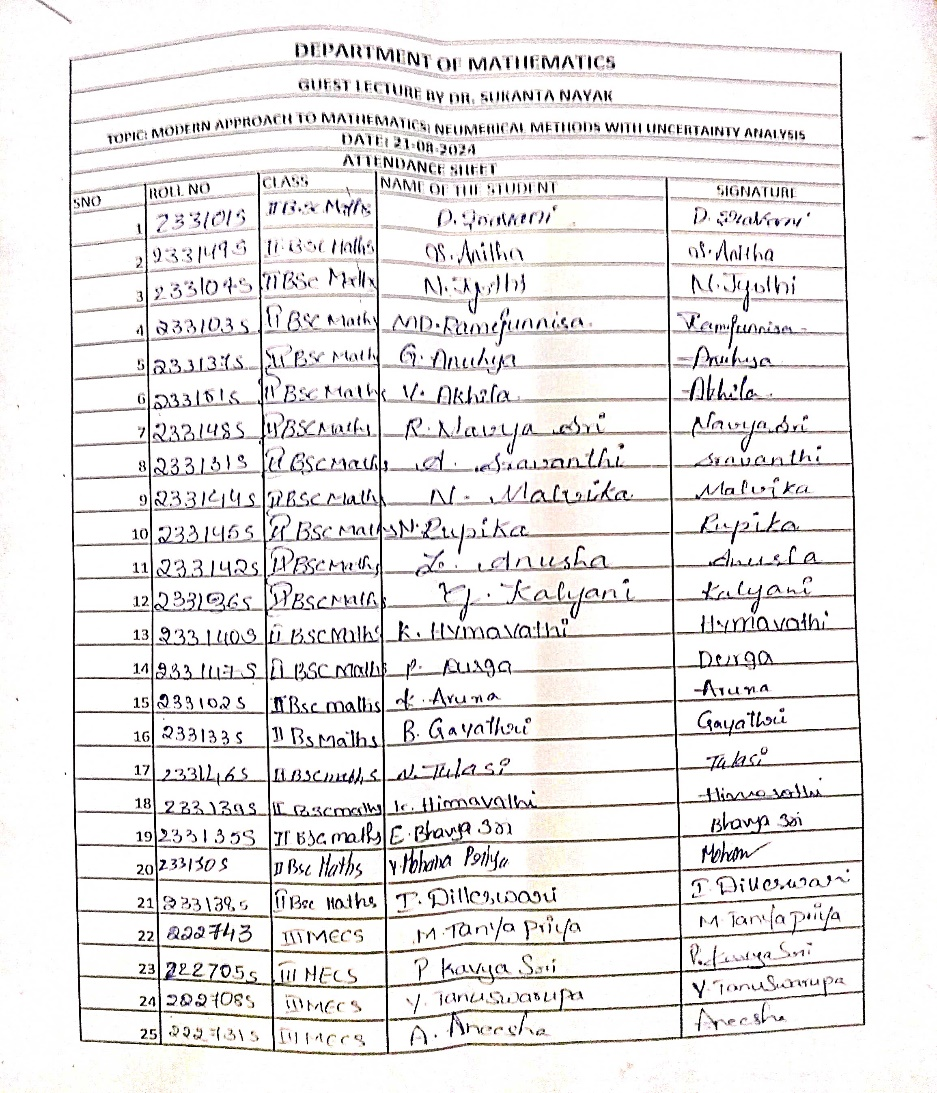 DEPARTMENT OF MATHEMATICS
GUEST LECTURE BY DR. SUKANTA NAYAK
TOPIC: MODERN APPROACH TO MATHEMATICS: NEUMERICAL METHODS WITH UNCERTAINTY ANALYSIS
DATE: 21-08-2024
ATTENDANCE SHEET
SNO ROLL NO CLASS NAME OF THE STUDENT SIGNATURE
1 233101S II B.Sc Maths D.
2 233149S II BSC Maths S. Anitha S. Anitha
3 233104S II BSc Maths N. Jyothi N. Jyothi
4 233103S II BSC Maths MD. Ramejunnisa Ramejunnisa
5 233137S II BSC Maths G. Anuhya Anuhya
6 233151S II BSC Maths V. Akhila Akhila
7 233148S II BSC Maths R. Navya Sri Navya Sri
8 233131S II BSC Maths A. Sravanthi Sravanthi
9 233144S II BSC Maths N. Malvika Malvika
10 233145S II BSC Maths N. Rupika Rupika
11 233142S II BSC Maths L. Anusha Anusha
12 II BSC Maths G. Kalyani Kalyani
13 233140S II BSC Maths K. Hymavathi Hymavathi
14 233147S II BSC Maths P. Durga Durga
15 233102S II Bsc maths K. Aruna Aruna
16 233133S II Bs Maths B. Gayathri Gayathri
17 233146S II BSC maths N. Tulasi Tulasi
18 233139S II Bsc maths K. Himavathi Himavathi
19 233135S II BSC maths E. Bhavya Sri Bhavya Sri
20 233150S II Bsc Maths Y Mohana Priya Mohan
21 233138S II Bsc Maths I. Dilleswari I Dilleswari
22 222743 III MECS M. Tanya priya M Tanya priya
23 222705s III MECS P Kavya Sri P. Kavya Sri
24 222708S III MECS Y. Tanuswarupa Y. Tanuswarupa
25 222731S III MECS A. Aneesha Aneesha